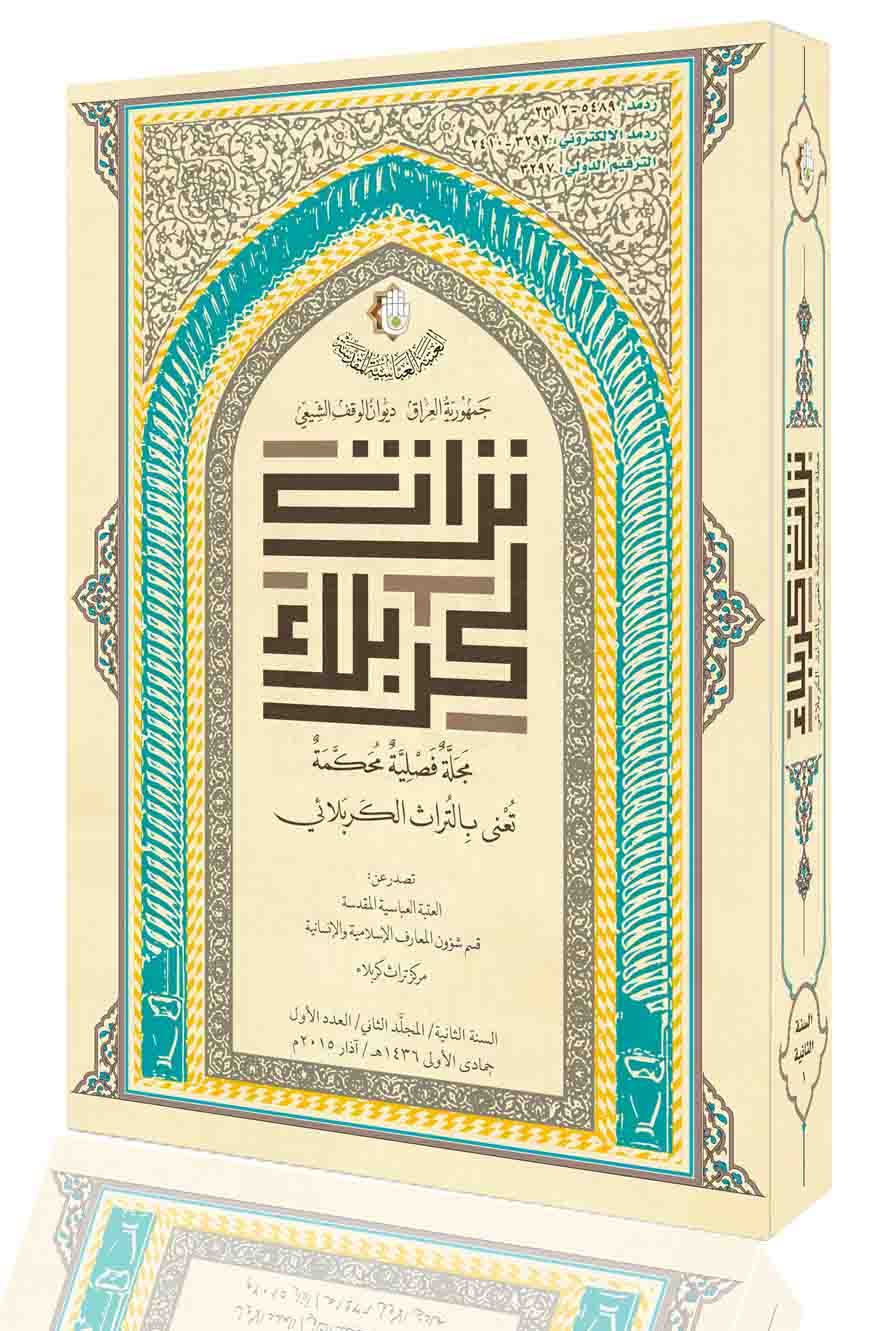 ردمد: ٥٤٨٩-٢٣١٢
ردمد الالكتروني: ٣٢٩٢-٢٤١٠
الترقيم الدولي: ٣٢٩٧
العتبة العباسية المقدسة
جمهورية العراق ديوان الوقف الشيعي
تراث
كربلاء
مَجَلَّةٌ فَصْلِيَّةٌ مُحَكَّمَةٌ
تُعْنى بِالتُّراث الكَربَلائي
تصدر عن:
العتبة العباسية المقدسة
قسم شؤون المعارف الإسلامية والإنسانية
مركز تراث كربلاء
السنة الثانية/ المجلَّد الثاني/ العدد الأول
جمادى الأولى ١٤٣٦هـ/ آذار ٢٠١٥م
تراث كربلاء
مجلة فصلية محكمة تعنى بالتراث الكربلائي
السنة
الثانية
١